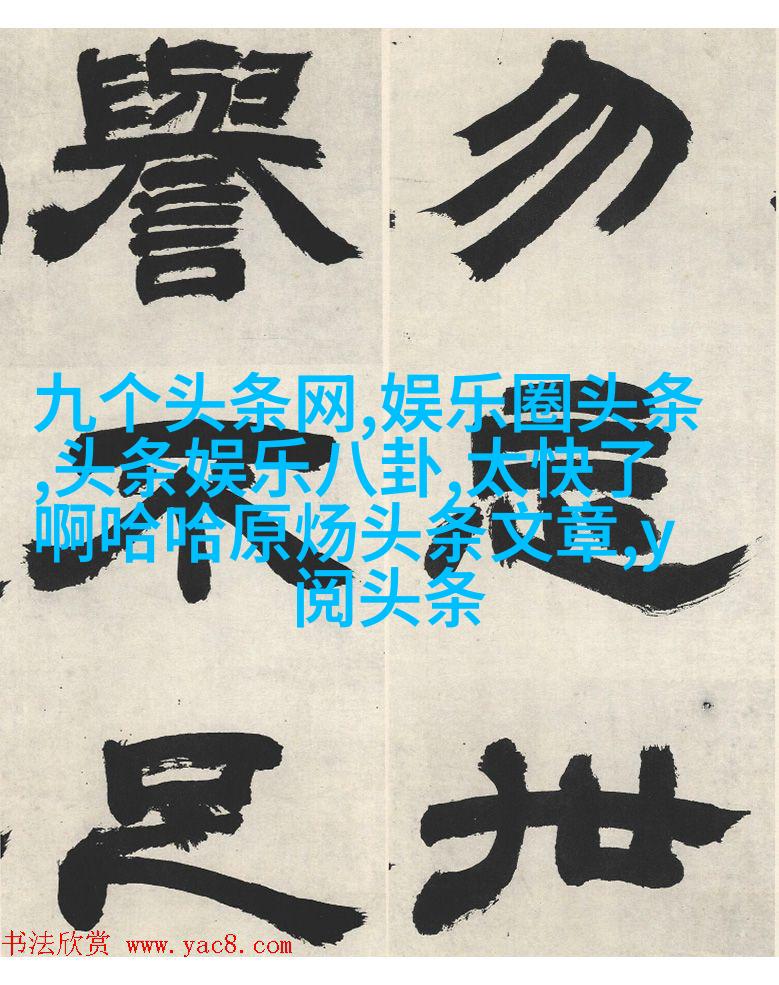 勿忘世
譽不足
九个头条网,娱乐圈头条
,头条娱乐八卦,太快了
啊哈哈原炀头条文章,y
阅头条
书法欣赏 www.yac8.com